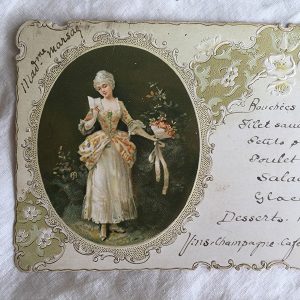 Madme Marsay
Bouchées
Filet sau
Petits p
Poulet
Salad
Glac
Desserts.
Vins-Champagne-Café